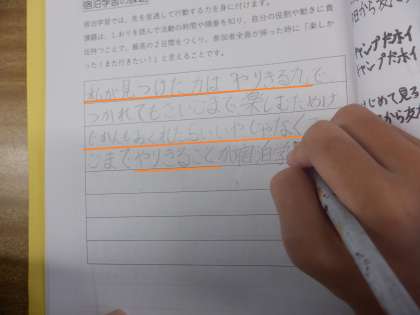 宿泊学習の
宿泊学習では、先を見通して行動する力を身に付けます。
課題は、しおりを読んで活動の時間や順番を知り、自分の役割や動きに責
任持つことで、最高の2日間をつくり、参加者全員が帰った時に「楽しか
った！また行きたい！」と言えることです。
私が見つけた力は「やりきる力」で
つかれてもさいごまで楽しむ
じかんもおくれたらいいやじゃなく
ごまでやりきることが宿泊学
から友
キャンプだホイ
キャンプだホイ
じめて見る
から友